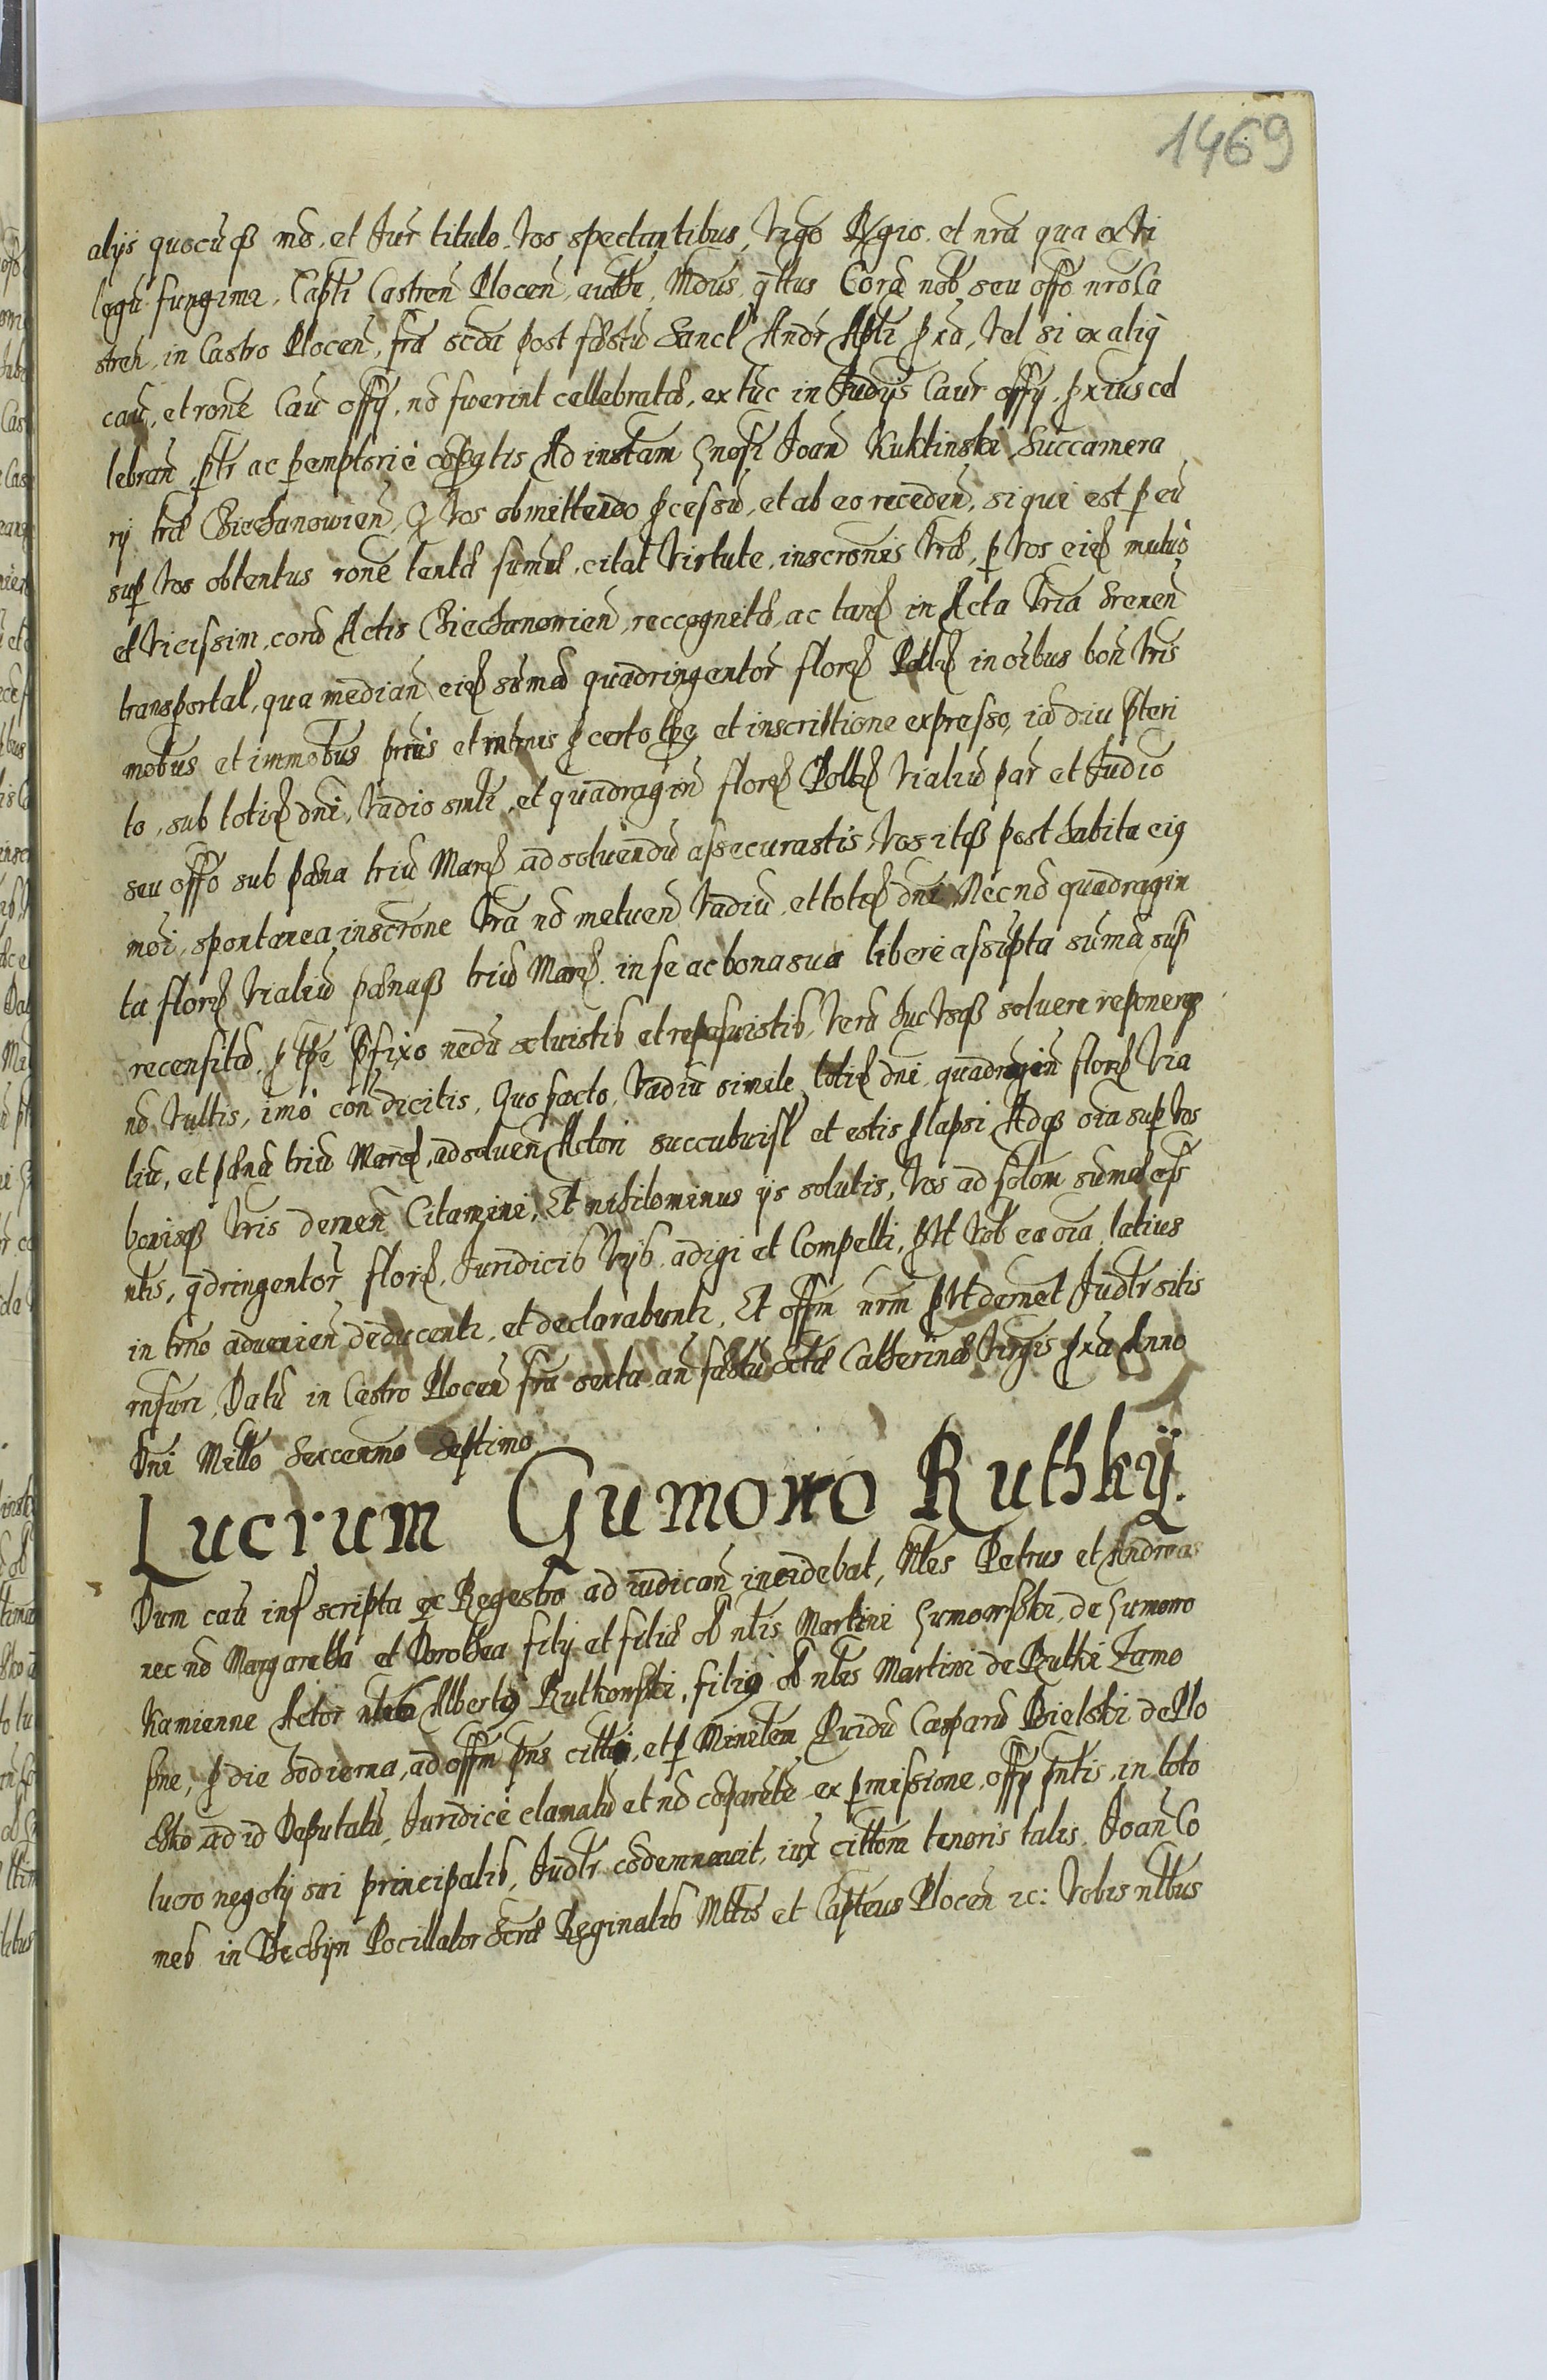 1469
alijs quocūqȝ mō, et Jur̄ titulo, Vos spectantibus, Vigō Rgio, et nrā qua ex Vi
legū fungimr, Captī Castren̄ Plocen̄, autthe, Mdūs, qttus Corā nob̄ seu offō nrō Ca
stren̄, in Castro Plocen̄, frā scda post fæstū Sancī Andr̄ Aptī pxā, Vel si ex aliq̄
cau, et ronē Cau offij, nō fuerint cellebratæ, ex tūc in Judijs Caur̄ offij, pxius cel
lebran̄, ptr ac pemptoriè cōpatis Ad instam Gnosi Joan̄ Kuklinski Succamera
rij træ Ciechanowien̄, Q Vos obmittendo pcessū, et ab eo receden̄, si qui est p eū
sup Vos obtentus ronē tentæ sumæ, citat Virtute, inscronis Vræ, p Vos eidē mutuò
et Vicissim, corā Actis Ciechanowien̄, reccognitæ, ac tandē in Acta Vria Srenen̄
transportat, qua median̄ eidē sūmā quadringentor̄ florē Pollē in oībus bon̄ Vris
mobus et immobus prūis et inhius p certo tpe et inscriptione expresso, iā diu pteri
to, sub totidē dni, Vadio smli, et quadragin̄ florē Pollē Vialiū par et Judio
seu offō sub pæna triū Marē ad soluendū assecurastis, Vos itaqȝ post habita eiꝰ
mōi, spontanea inscrone Vra nō metuen̄ Vadiū, et totidē dni Necnō quadragin
ta florē Vialiū pænaqȝ triū Marē in se ac bona sua liberè assūpta sūmā sup
recensitā, p tpe pfixo nedū soluistis et reposuistis, Verū huc Vsqȝ soluere reponereqȝ
nō Vultis, imò con dicitis, Quo facto, Vadiū simile totidē dni quadragin̄ florē Via
liū, et pænā triū Marē, ad soluen̄ Actori succubuist et estis plapsi Adqȝ oīa sup Vos
bonisqȝ Vris demen̄ Citamini, Et nihilominus ijs solutis, Vos ad solom sūmæ
ntis, qdringentor̄ florē, Juridicis Vijs adigi et Compelli, pVt Vob ea oīa latius
in tmō aduenien̄ deducentr, et declarabuntr, Et offm nrm pVt demet Judtr sitis
rnsuri, Datū in Castro Plocen̄ frā sexta an̄ fæstū Sctæ Catherinæ Virgīs pxa Anno
Dni Millō Sexcenmo Septimo
Lucrum Gumowo Ruthky.
Dum cau inf scripta ex Regestro ad iudican̄ incidebat, Ntles Petrus et Andreas
nec nō Margaretha et Dorothea filij et filiæ ol ntlis Martini Gumowski, de Gumowo
Kamienne Actor̄ Albertꝰ Rutkowski, filiꝰ ol ntlis Martini de Rutki Zamo
sne, p die hodierna, ad offm pns, et p Minrtem Puidū Casparū Bielski de Plo
ad id Deputatū, Juridicè clamatū et nō cōparētē ex pmissione, offij pntis, in toto
lucro negotij sui principalis, Judtr cōdemnauit, iux cittom tenoris talis. Joan̄ Co
mes in Thechÿn Pocillator Scræ Reginalis Mttis et Capteus Plocen̄ &c: Vobis ntlbus